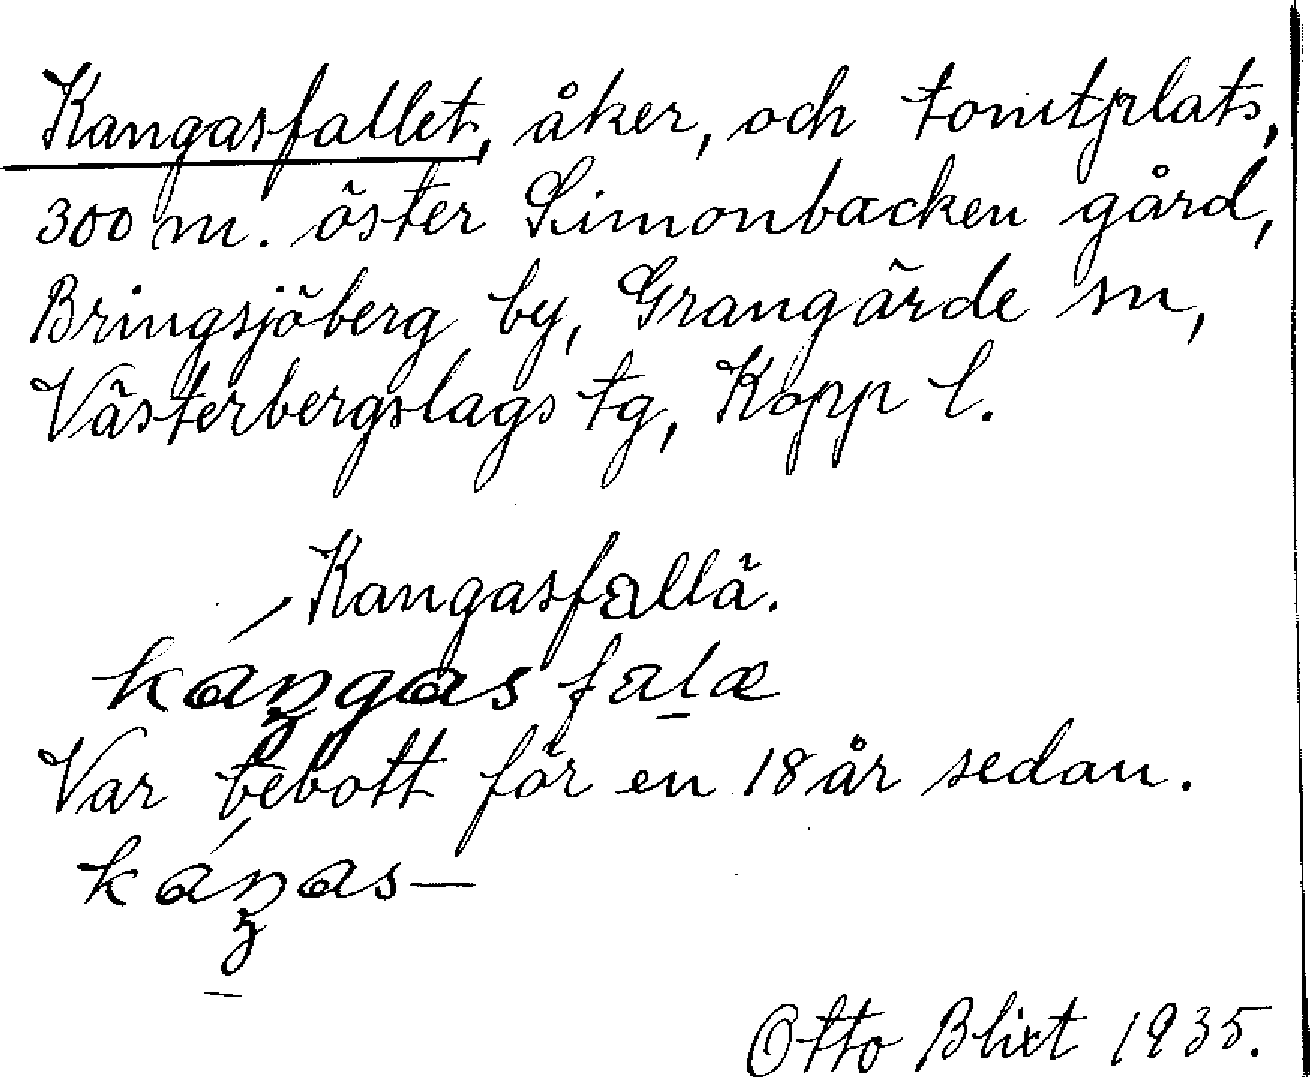 Kangasfallet, åker, och tomtplats,
300 m. öster Simonbacken gård,
Bringsjöberg by, Grangärde sn,
Västerbergslags tg, Kopp l.
Kangasfallä.
káŋgas falæ
Var bebott för en 18 år sedan.
káŋas—
Otto Blixt 1935.